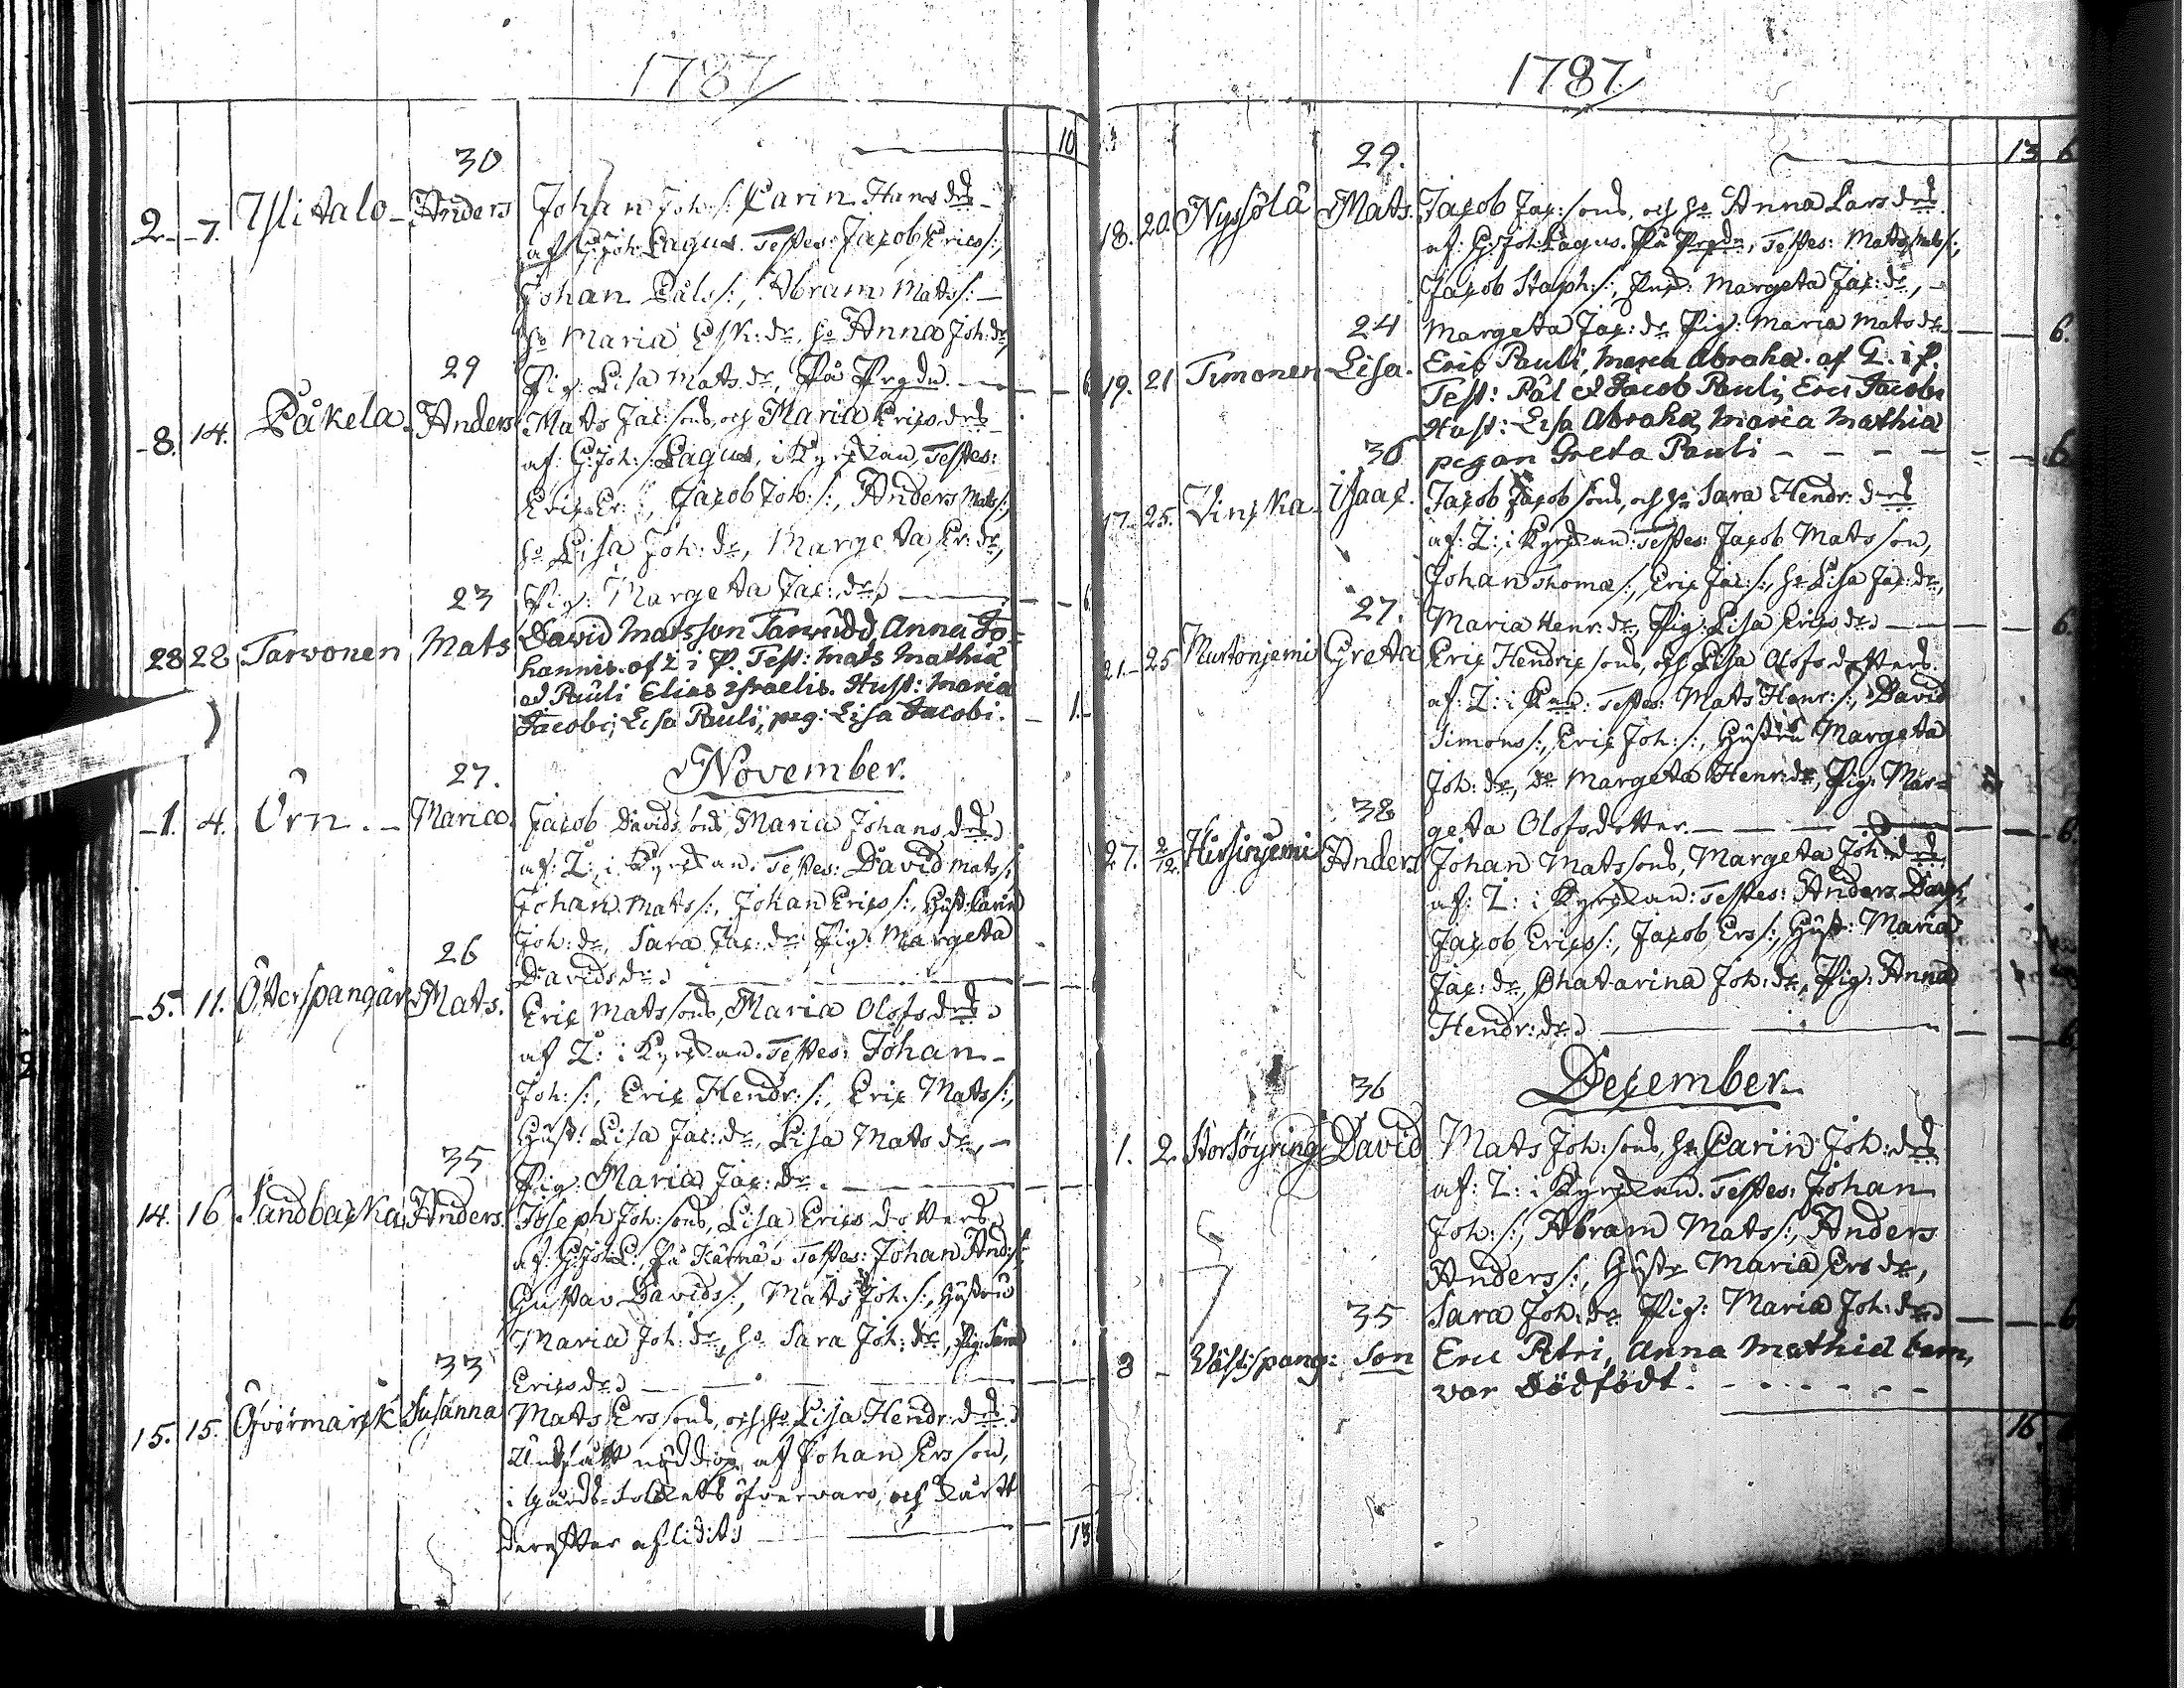 1787
10
30
2. 7. Ylitalo Anders Johan Joh:s/: Carin Hansdrs
af G: Joh: Lagus. Testes: Jacob Erics/:,
Johan Påls/:, Abram Mats/:
h:o Maria Esk: dr, h:o Anna Joh: dr
Pig: Lisa Mats. dr, På Prgdn.
29
8. 14. Påkela Anders Mats Jac: sons, och Maria Ericsdrs
af: G: Joh: Lagus, i Kyrckan, Testes:
Eric Er:, Jacob Joh: s/:, Anders Mats/:,
h:o Lisa Joh: dr, Margeta Er: dr,
Pig: Margeta Jac: dr
23
28 28 Tarvonen Mats David Matsson Tarvudd, Anna Jo=
hannis. af Z i P. Test: Mats Mathiæ
ed Pauli Elias Israelis. Hust: Maria
Jacobi, Lisa Pauli, pig: Lisa Jacobi. 1.
November.
27.
1. 4. Örn. Maria. Jacob Davids sons, Maria Johansdrs
af: Z: i Kyrckan. Testes: David Mats/:
Johan Mats/:, Johan Erics/:, Hust: Carin
Joh: dr, Sara Jac: dr Pig: Margeta
Davidsdr
26
5. 11. Ötterspangar Mats. Eric Mats sons, Maria Olofsdrs
af Z: i Kyrckan. Testes: Johan
Joh: s/:, Eric Hendr: s/:, Eric Mats/:,
Hust: Lisa Jac: dr, Lisa Mats dr,
Pig: Maria Jac: dr.
35
14. 16 Sandbacka Anders. Joseph Joh: sons, Lisa Ericsdotters
af: G: Joh: L:, på Kärnä, Testes: Johan And: s/:
Gustav Davids/:, Mats Joh: s/:, Hustru
Maria Joh: dr, h:o Sara Joh: dr, Pig: Sara
Ericsdr
33
15. 15. Öfvermarck Susanna Mats Ers sons, och h:o Lisa Hendr: drs
Undfått nöddop af Johan Ersson,
i Gårds-folckets öfvervaro, och kårtt
derefter aflidit 13
1787
13 6
29.
18. 20. Nygölä Mats. Jacob Jac: sons, och h:o Anna Larsdrs
af: G: Joh: Lagus. På Prgdn, Testes: Mats Mats/:,
Jacob Staph: s/:, Hust: Margeta Jac: dr,
Margeta Jac: dr Pig: Maria Mats dr 6.
24
19. 21 Timonen Lisa. Eric Pauli, Maria Abraha. af G. i P.
Test: Pål & Jacob Pauli, Eric Jacobi
Hust: Lisa Abraha, Maria Mathiæ
pigan Greta Pauli 6
30
17. 25. Vinska Isaac. Jacob Jacob sons, och h:o Sara Hendr: drs
af: Z: i Kyrckan: Testes: Jacob Matsson,
Johan Thomæ s/:, Eric Jac: s/:, h:o Lisa Jac: dr,
Maria Henr: dr, Pig: Lisa Ericsdr 6.
27.
21. 25 Murtonjemi Greta Eric Hendric sons, och Lisa Olofsdotters.
af: Z: i Kan: Testes: Mats Henr: s/:, David
Simons/:, Eric Joh: s/:, Hustru Margeta
Joh: dr, dr Margeta Henr: dr, Pig: Mar=
geta Olofsdotter. 6
38
27. 2/12. Hirsinjemi Anders Johan Mats sons, Margeta Joh: drs,
af: Z: i Kyrckan: Testes: Anders
Jacob Erics/:, Jacob Ers/:, Hust: Maria
Jac: dr, Chatarina Joh: dr, Pig: Anna
Hendr: dr 6
December.
36
1. 2. Storsöyring David Mats Joh: sons, h:o Carin Joh: drs
af: Z: i Kyrckan. Testes: Johan
Joh: s/:, Abram Mats/:, Anders
Anders/:, Hustr Maria Ersdr,
Sara Joh: dr Pig: Maria Joh: dr 6
35
3 Västspang: son Eric Petri, Anna Mathiæ barn,
var Dödfödt.
16